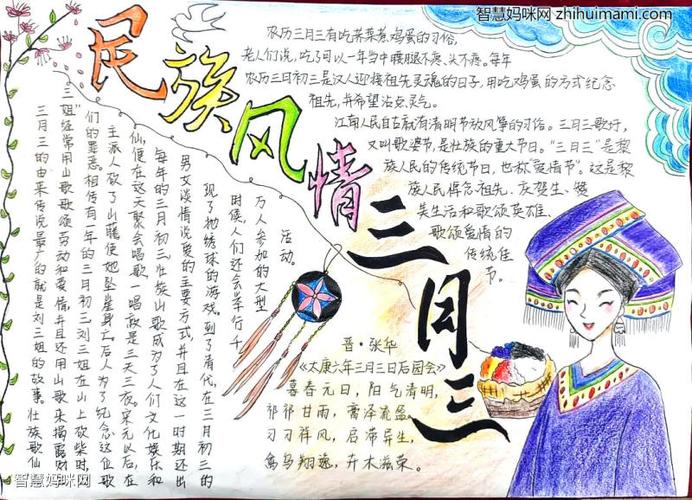 智慧妈咪网 zhihuimami.com
民族风情三月三
农历三月三有吃荠菜煮鸡蛋的习俗,
老人们说,吃了可以一年当中腰腿不疼、头不疼。每年
农历三月初三是汉人迎接祖先灵魂的日子,用吃鸡蛋的方式纪念
祖先,并希望沾点灵气。
江南人民自古就有清明节放风筝的习俗。三月三歌圩,
又叫歌婆节,是壮族的重大节日。“三月三”是黎
族人民的传统节日,也称“爱情节”。这是黎
族人民悼念祖先、庆贺生、赞
美生活和歌颂英雄、
歌颂爱情的
传统佳
节。
三月三的由来传说最广的就是刘三姐的故事。壮族歌仙
三姐经常用山歌歌颂劳动和爱情,并且还用山歌来揭露财
们的罪恶。相传有一年的三月初三刘三姐在山上砍柴时,
主派人砍了山藤使她坠崖身亡。后人为了纪念这位歌
仙,便在这天聚会唱歌,一唱就是三天三夜。宋元以后,在
每年的三月初三壮族山歌成为了人们文化娱乐和
男女谈情说爱的主要方式,并且在这一时期还出
现了抛绣球的游戏。到了清代,在三月初三的
时候,人们还会举行千
万人参加的大型
活动。
晋·张华
《太康六年三月三日后园会》
暮春元日,阳气清明,
祁祁甘雨,膏泽流盈。
习习祥风,启滞导生,
禽鸟翔逸,卉木滋荣。
智慧妈咪网